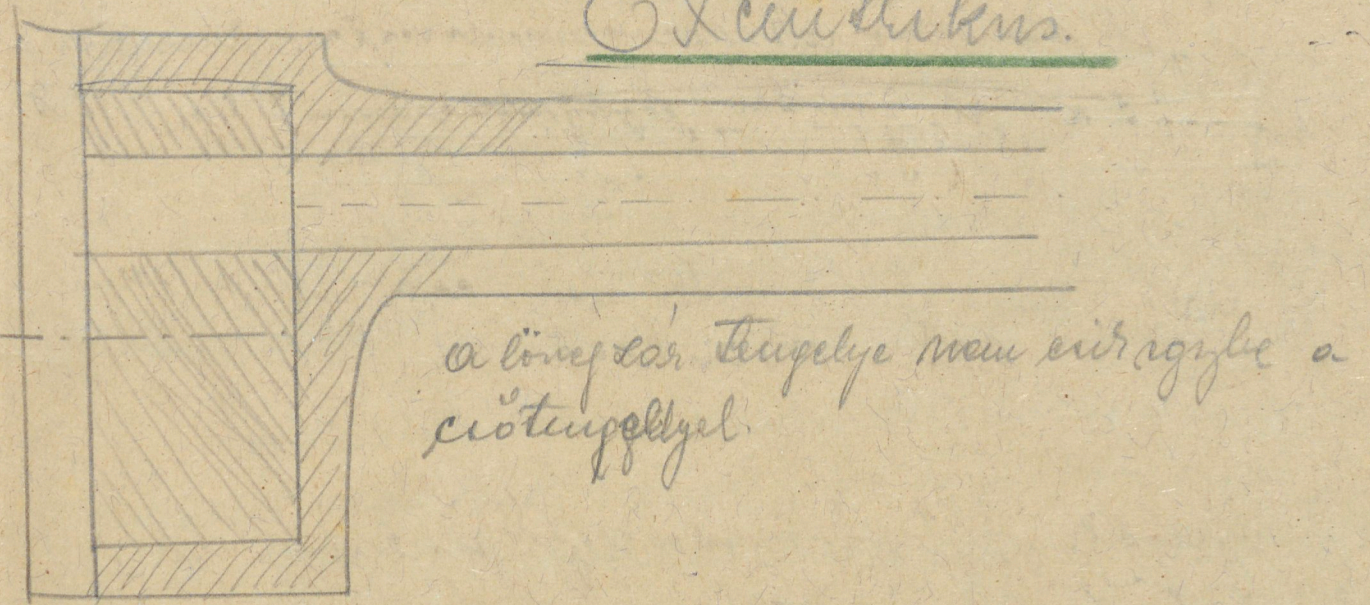 Excentrikus.
a löveg zár tengelye nem esik egybe a
csőtengellyel.